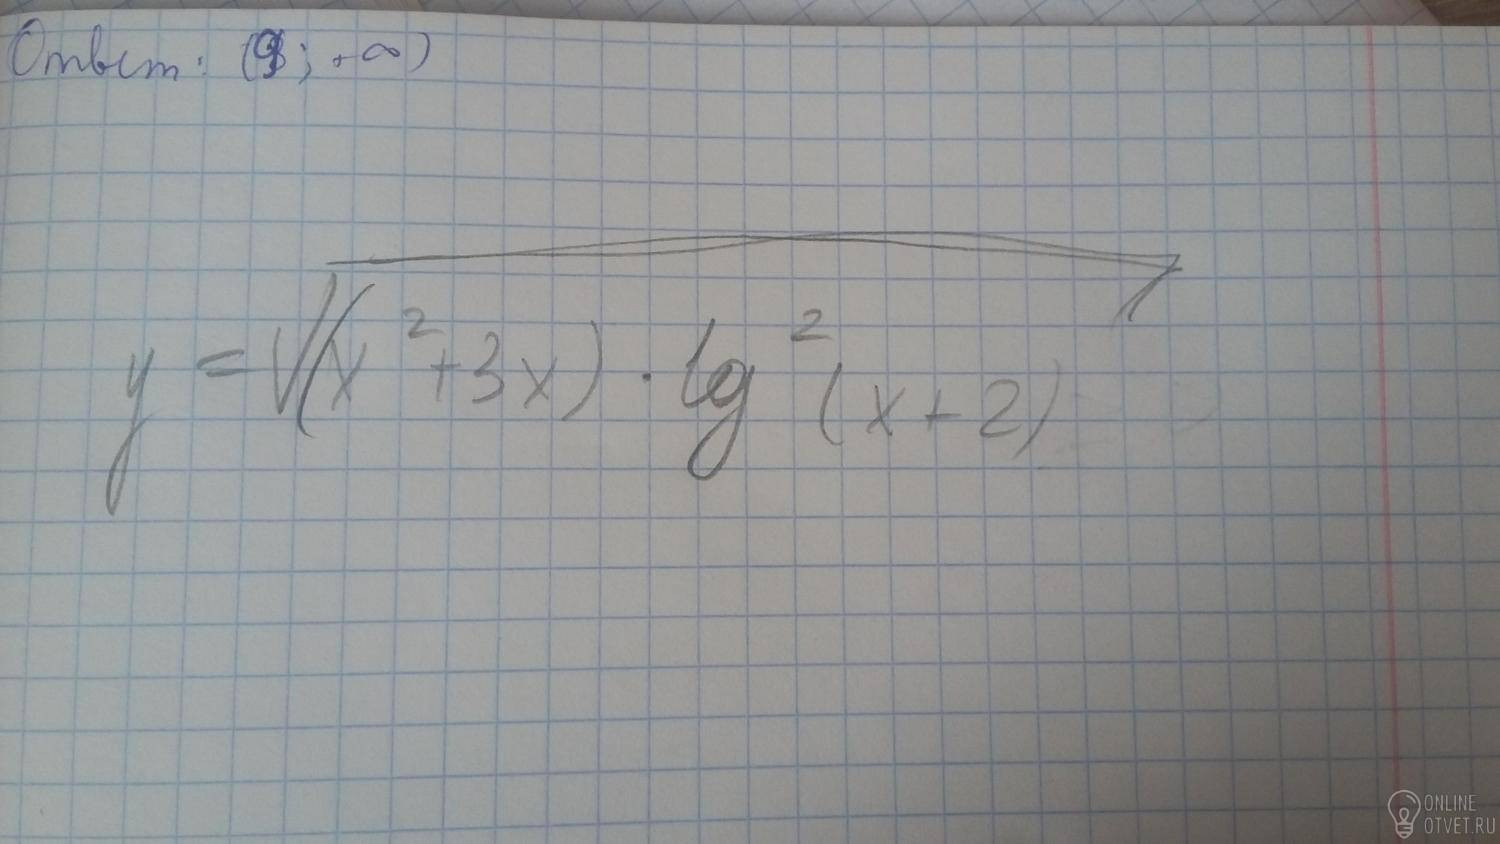 Ответ: (9; +∞)
y = √((x²+3x) · lg²(x+2))
ONLINE
OTVET.RU